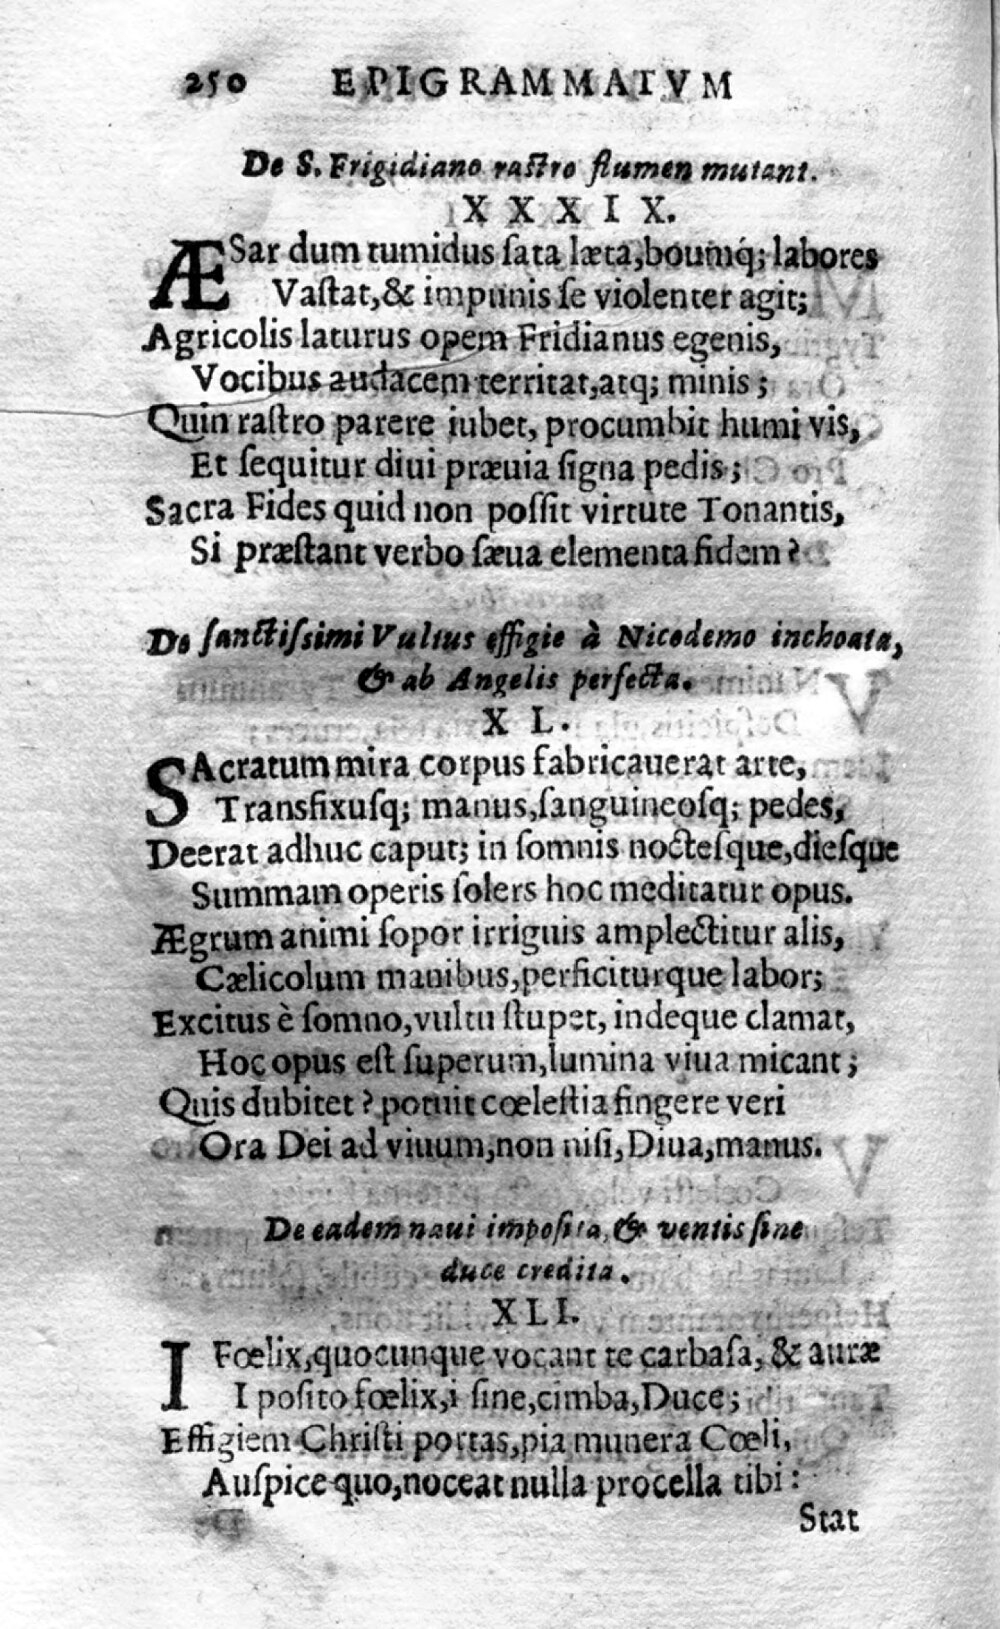 250 EPIGRAMMATVM
De S. Frigidiano raſtro flumen mutant.
XXXIX.
ÆSar dum tumidus ſata læta,boumq́; labores
Vaſtat,& impunis ſe violenter agit;
Agricolis laturus opem Fridianus egenis,
Vocibus audacem territat,atq; minis;
Quin raſtro parere iubet, procumbit humi vis,
Et ſequitur diui præuia ſigna pedis;
Sacra Fides quid non poſſit virtute Tonantis,
Si præſtant verbo ſæua elementa fidem?
De ſanctiſsimi Vultus effigie à Nicodemo inchoata,
& ab Angelis perfecta.
XL.
SAcratum mira corpus fabricauerat arte,
Transfixuſq; manus,ſanguineoſq; pedes,
Deerat adhuc caput; in ſomnis noctеſque,dieſque
Summam operis ſolers hoc meditatur opus.
Ægrum animi ſopor irriguis amplectitur alis,
Cælicolum manibus,perficiturque labor;
Excitus è ſomno,vultu ſtupet, indeque clamat,
Hoc opus eſt ſuperum,lumina viua micant;
Quis dubitet? potuit cœleſtia fingere veri
Ora Dei ad viuum,non niſi,Diua,manus.
De eadem naui impoſita, & ventis ſine
duce credita.
XLI.
I Fœlix,quocunque vocant te carbaſa, & auræ
I poſito fœlix,i ſine,cimba,Duce;
Effigiem Chriſti portas,pia munera Cœli,
Auſpice quo,noceat nulla procella tibi:
Stat